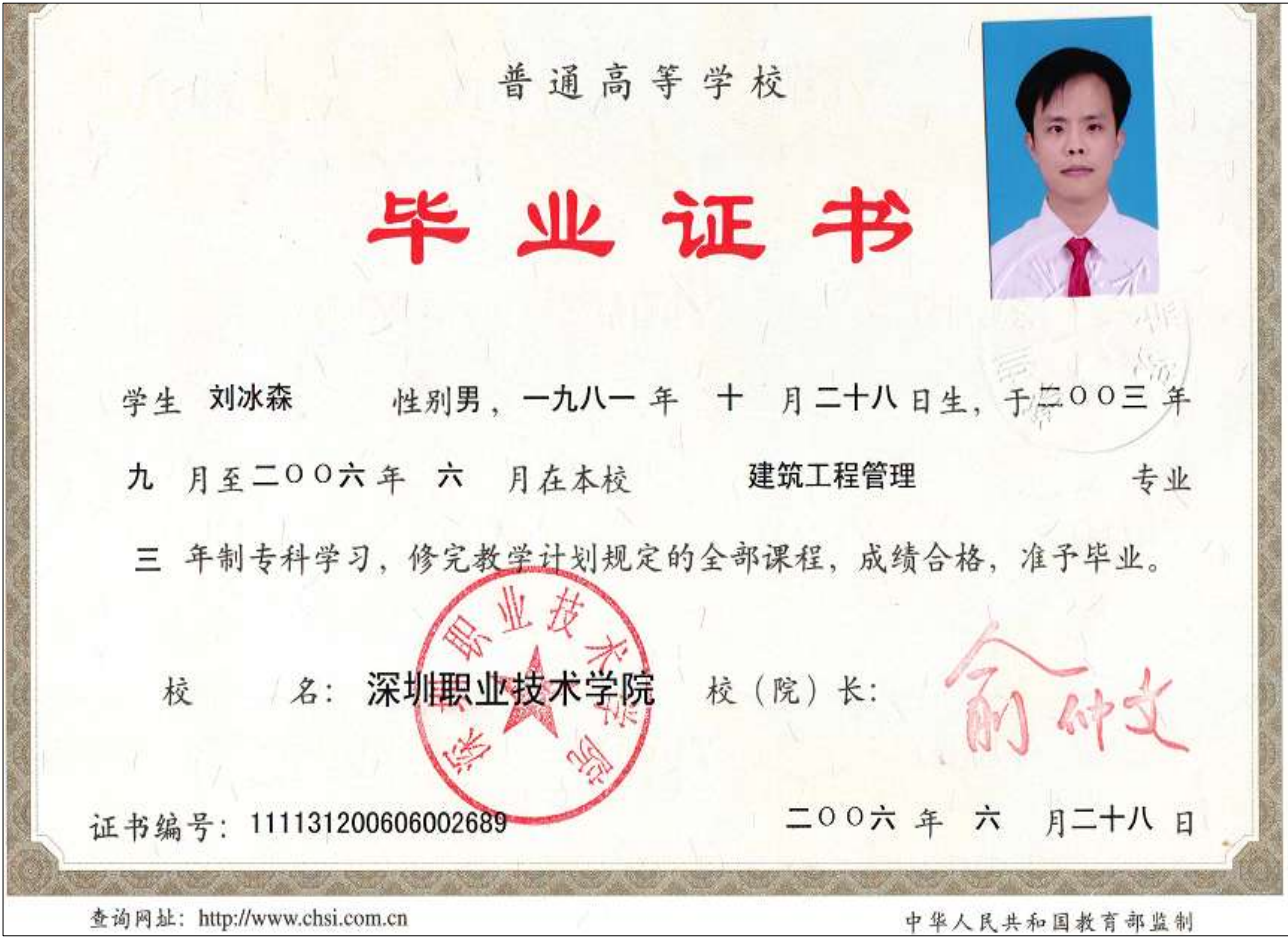 普通高等学校
毕业证书
学生 刘冰森 性别男，一九八一年 十 月二十八日生，于二〇〇三年
九 月至二〇〇六年 六 月在本校 建筑工程管理 专业
三 年制专科学习，修完教学计划规定的全部课程，成绩合格，准予毕业。
深圳职业技术学院
校 名：深圳职业技术学院 校（院）长：俞仲文
证书编号：111131200606002689 二〇〇六年 六 月二十八日
查询网址：http://www.chsi.com.cn 中华人民共和国教育部监制